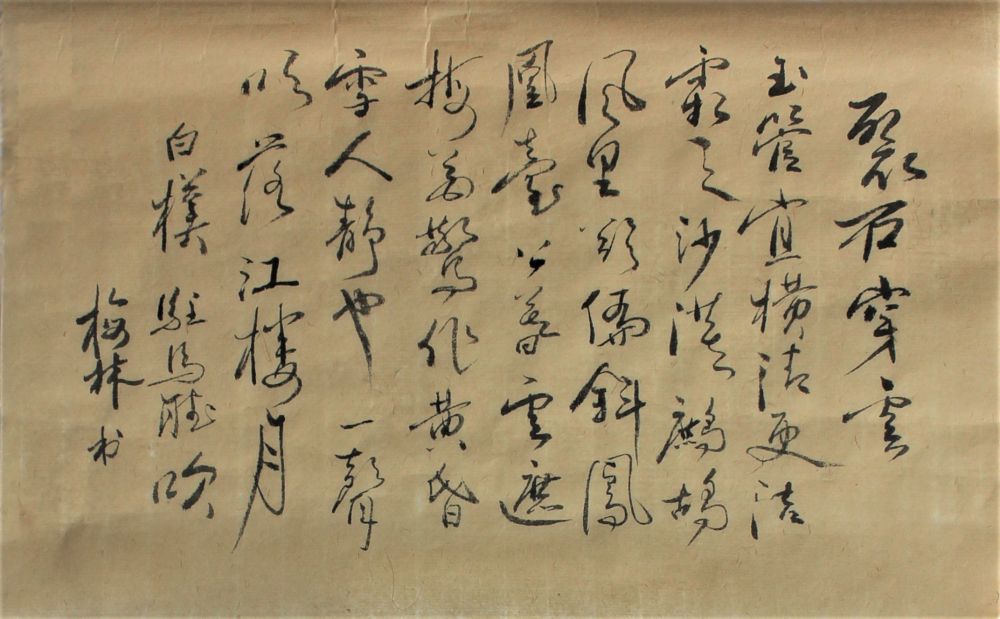 裂石穿雲
玉管宜横清更洁
霜天沙漠鷓鴣
風里欲偏斜鳳
凰臺上暮雲遮
梅花驚作黄昏
雪人靜也一聲
吹落江樓月
白樸 駐馬聽 吹
梅林 书